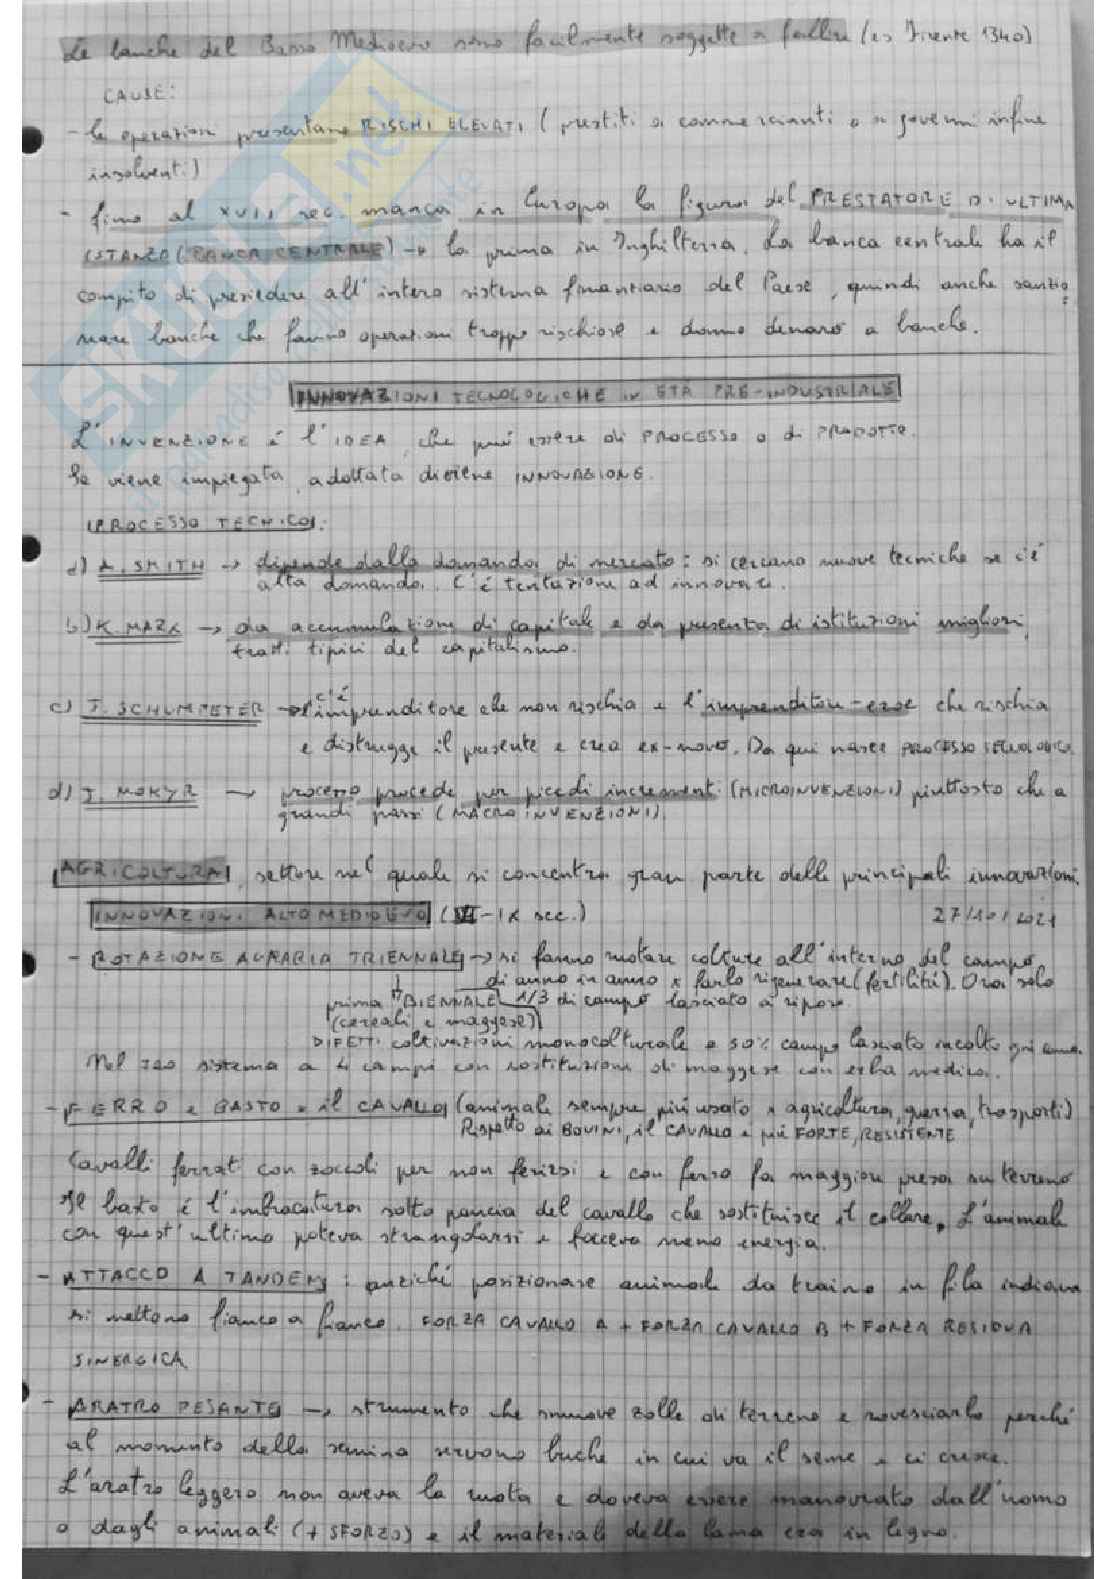 Le banche del Basso Medioevo sono facilmente soggette a fallire (es Firenze 1340)
CAUSE:
- le operazioni presentano RISCHI ELEVATI (prestiti a commercianti o a governi infine
insolventi)
- fino al XVII sec. manca in Europa la figura del PRESTATORE DI ULTIMA
ISTANZA (BANCA CENTRALE) → la prima in Inghilterra. La banca centrale ha il
compito di presiedere all'intero sistema finanziario del Paese, quindi anche sanzio
nare banche che fanno operazioni troppo rischiose e danno denaro a banche.
INNOVAZIONI TECNOLOGICHE IN ETÀ PRE-INDUSTRIALE
L'INVENZIONE è l'IDEA, che può essere di PROCESSO o di PRODOTTO.
Se viene impiegata, adottata diviene INNOVAZIONE.
PROCESSO TECNICO:
a) A. SMITH → dipende dalla domanda di mercato: si cercano nuove tecniche se c'è
alta domanda. C'è tentazione ad innovare.
b) K. MARX → da accumulazione di capitale e da presenza di istituzioni migliori,
tratti tipici del capitalismo.
c) J. SCHUMPETER → c'è l'imprenditore che non rischia e l'imprenditore-eroe che rischia
e distrugge il presente e crea ex-novo. Da qui nasce PROCESSO TECNOLOGICO.
d) J. MOKYR → processo procede per piccoli incrementi (MICROINVENZIONI) piuttosto che a
grandi passi (MACROINVENZIONI).
AGRICOLTURA, settore nel quale si concentra gran parte delle principali innovazioni.
INNOVAZIONI ALTO MEDIOEVO (-IX sec.) 27/10/2021
- ROTAZIONE AGRARIA TRIENNALE → si fanno ruotare colture all'interno del campo
di anno in anno x farlo rigenerare (fertilità). Ora solo
prima BIENNALE 1/3 di campo lasciato a riposo.
(cereali e maggese)
DIFETTI coltivazioni monocolturale e 50% campo lasciato incolto ogni anno.
Nel 720 sistema a 4 campi con sostituzione di maggese con erba medica.
- FERRO e BASTO x il CAVALLO (animale sempre più usato x agricoltura, guerra, trasporti)
Rispetto ai BOVINI, il CAVALLO è più FORTE, RESISTENTE
Cavalli ferrati con zoccoli per non ferirsi e con ferro fa maggiore presa su terreno
Il basto è l'imbracatura sotto pancia del cavallo che sostituisce il collare. L'animale
con quest'ultimo poteva strangolarsi e faceva meno energia.
- ATTACCO A TANDEM: anziché posizionare animale da traino in fila indiana
si mettono fianco a fianco. FORZA CAVALLO A + FORZA CAVALLO B + FORZA RESIDUA
SINERGICA
- ARATRO PESANTE → strumento che smuove zolle di terreno e rovesciarlo perché
al momento della semina servono buche in cui va il seme e ci cresce.
L'aratro leggero non aveva la ruota e doveva essere manovrato dall'uomo
o dagli animali (+ SFORZO) e il materiale della lama era in legno.
SKUOLA.net